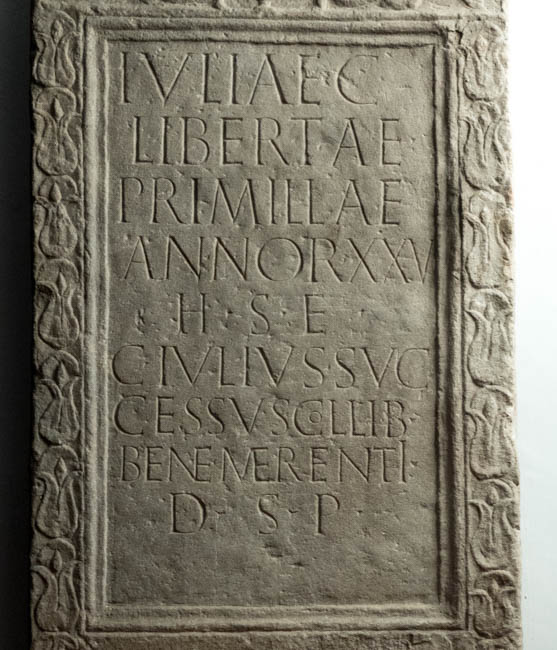 IVLIAE C
LIBERTAE
PRIMILLAE
ANNOR XXV
H · S · E
C · IVLIVS · SVC
CESSVS COLLIB ·
BENE · MERENTI ·
D · S · P